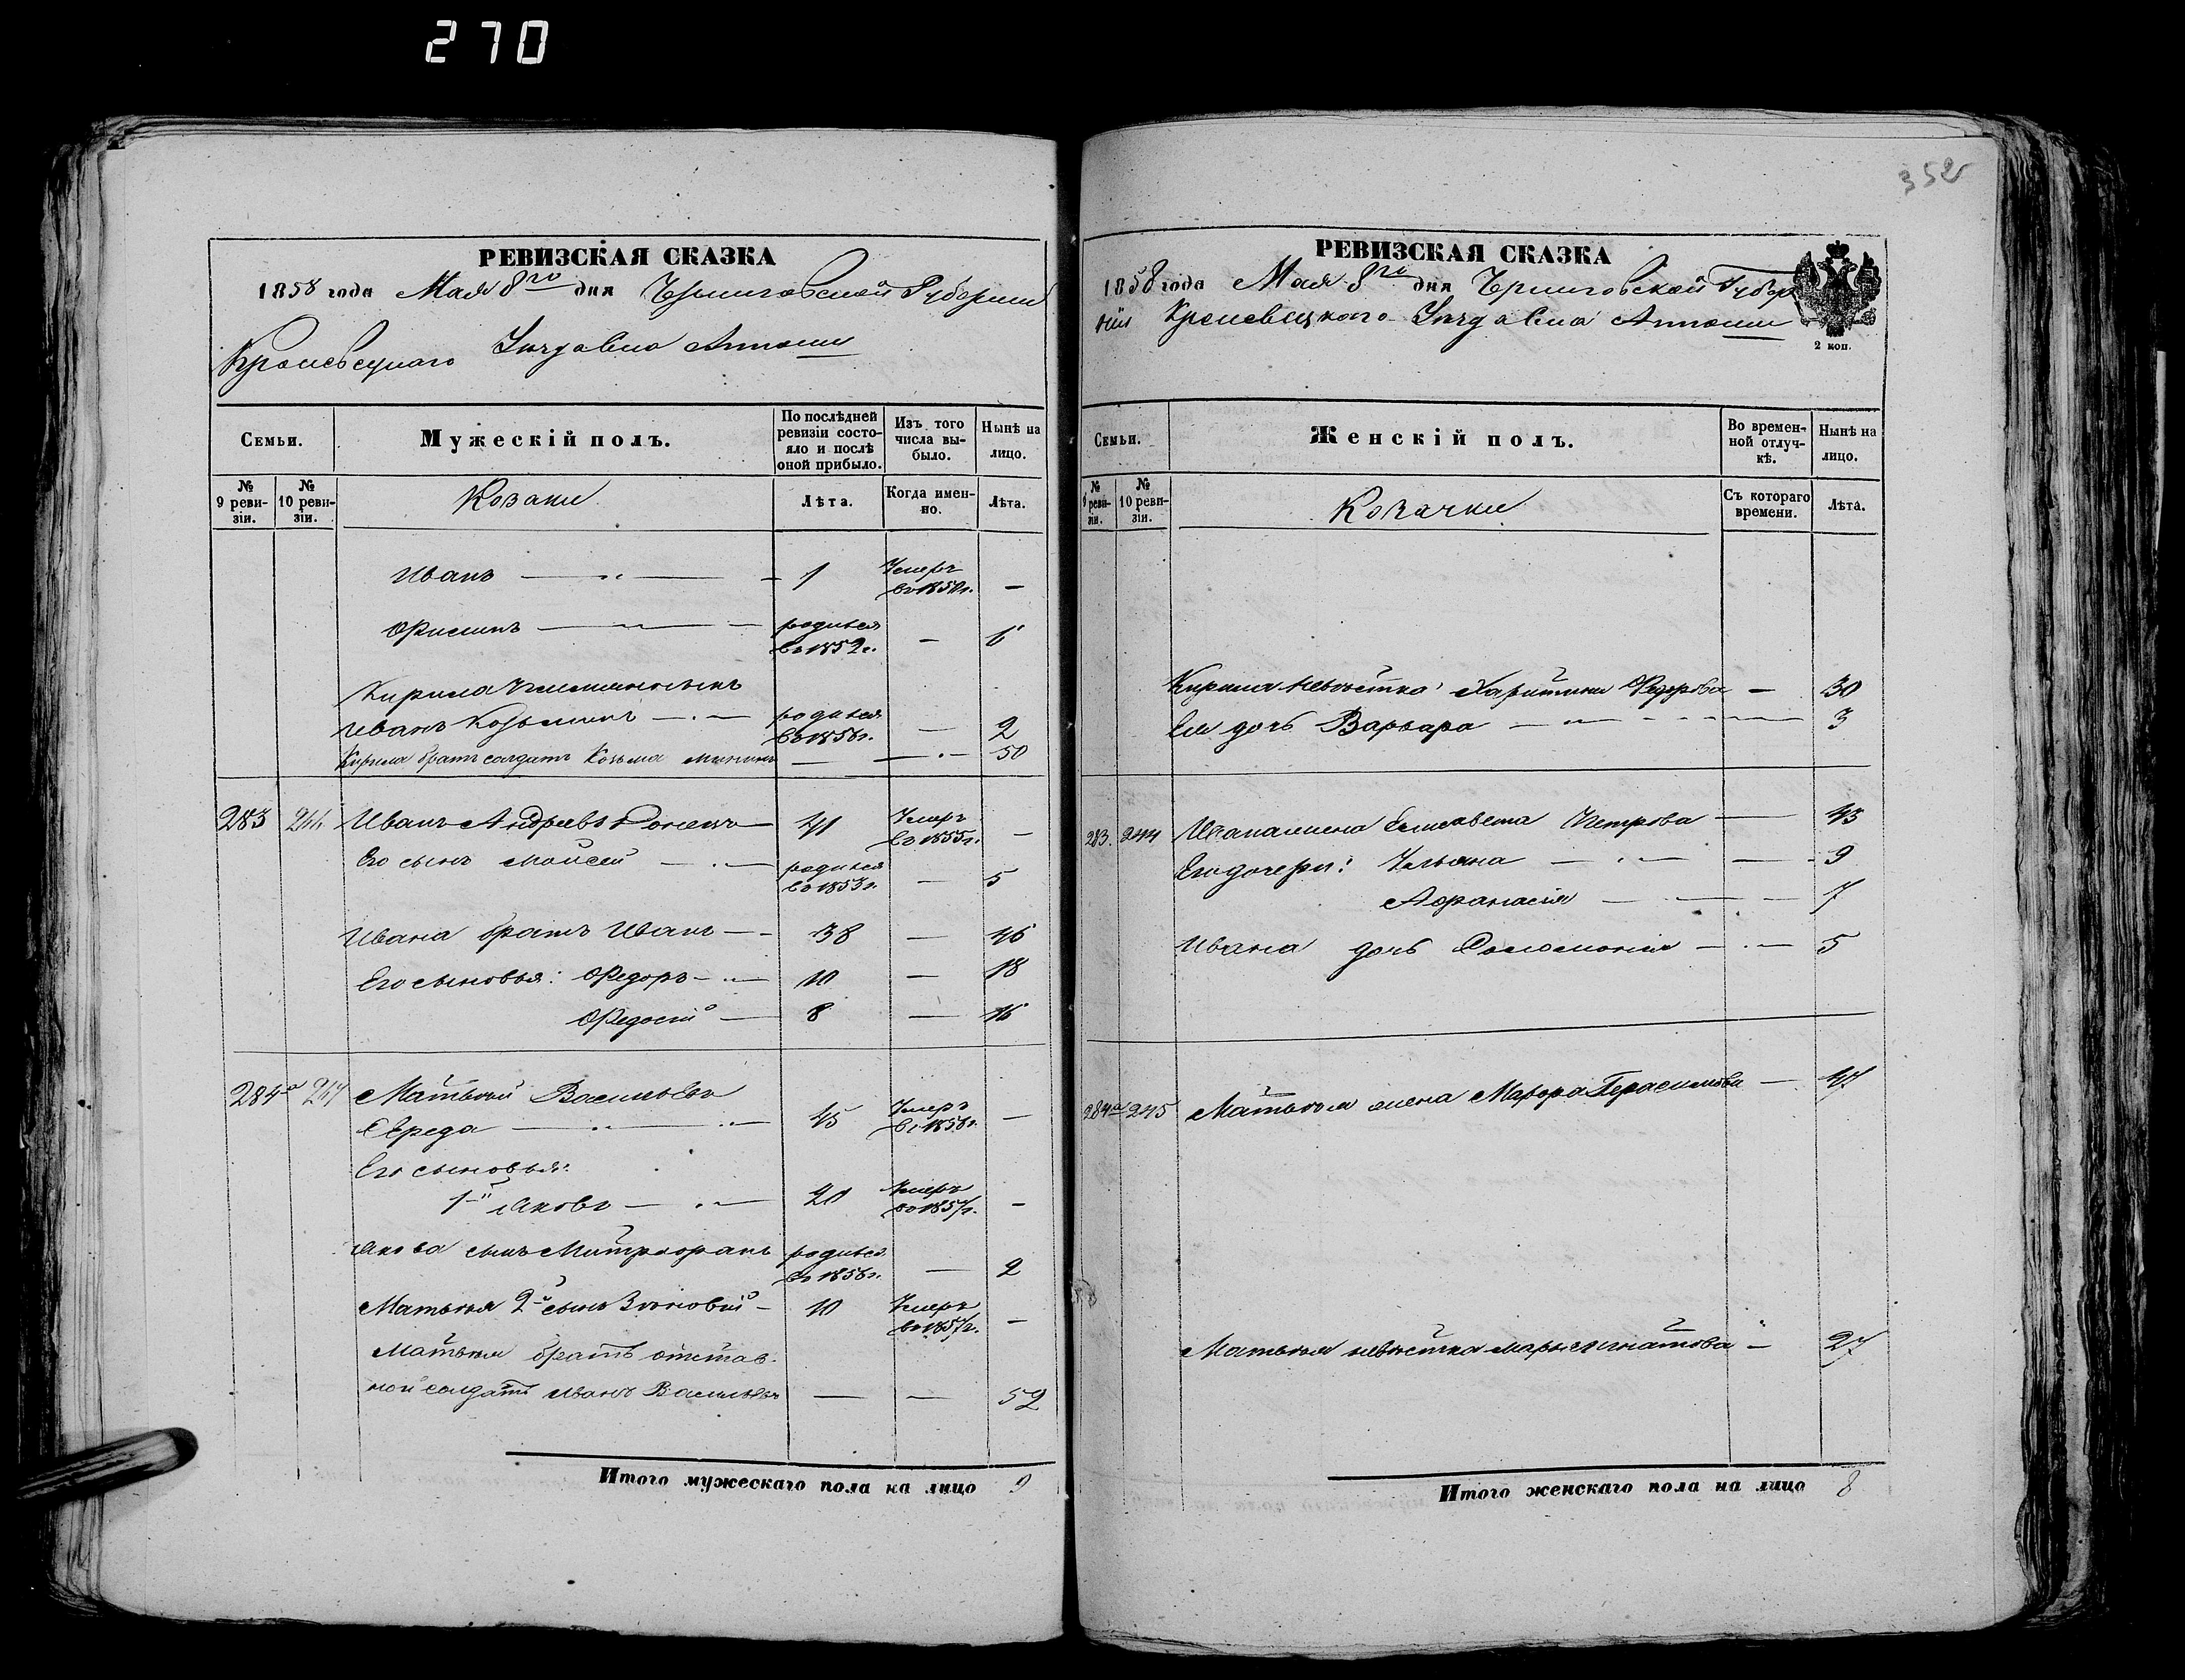 270
352
РЕВИЗСКАЯ СКАЗКА
1858 года Мая 8го дня Черниговской Губернии
Кролевецкаго Уезда Села Атюши
Семьи.
Мужескій полъ.
По послѣдней ревизіи состояло и послѣ оной прибыло.
Изъ того числа выбыло.
Нынѣ на лицо.
№ 9 ревизіи.
№ 10 ревизіи.
Козаки
Лѣта.
Когда именно.
Лѣта.
Иванъ — 1 Умеръ въ 1850г. —
родился въ 1852г. — 6
Кирила
Иванъ Козьминъ — родился въ 1856г. — 2
Кирила братъ солдатъ Козьма — — 50
283 244 Иванъ Андреевъ 41 Умеръ въ 1855г. —
Его сынъ Моисей — родился въ 1853г. — 5
Ивана братъ Иванъ — 38 — 46
Его сыновья: Федоръ — 10 — 18
Федосій — 8 — 16
284а Матвѣй Васильевъ
Середа — 45 Умеръ въ 1858г. —
Его сыновья:
1й Яковъ — 20 Умеръ въ 1857г. —
Якова сынъ Митрофанъ родился въ 1856г. — 2
Матвѣя 2й сынъ Зѣновій — 10 Умеръ въ 1857г. —
Матвѣя братъ отстав-
ной солдатъ Иванъ Васильевъ — — 52
Итого мужескаго пола на лицо 9
РЕВИЗСКАЯ СКАЗКА
1858 года Мая 8го дня Черниговской Губер
ніи Кролевецкаго Уезда Села Атюши
2 коп.
Семьи.
Женскій полъ.
Во временной отлучкѣ.
Нынѣ на лицо.
№ 9 ревизіи.
№ 10 ревизіи.
Козачки
Съ котораго времени.
Лѣта.
Кирила невѣстка Харитина Федорова — 30
Ея дочь Варвара — 3
283. 244 Ивана жена Елисавета Петрова — 43
Его дочери: Ульяна — 9
Афанасія — 7
Ивана дочь Соломонія — 5
284а 245 Матвѣя жена Марфа Герасимова — 47
Матвѣя невѣстка Марья Игнатова — 27
Итого женскаго пола на лицо 8